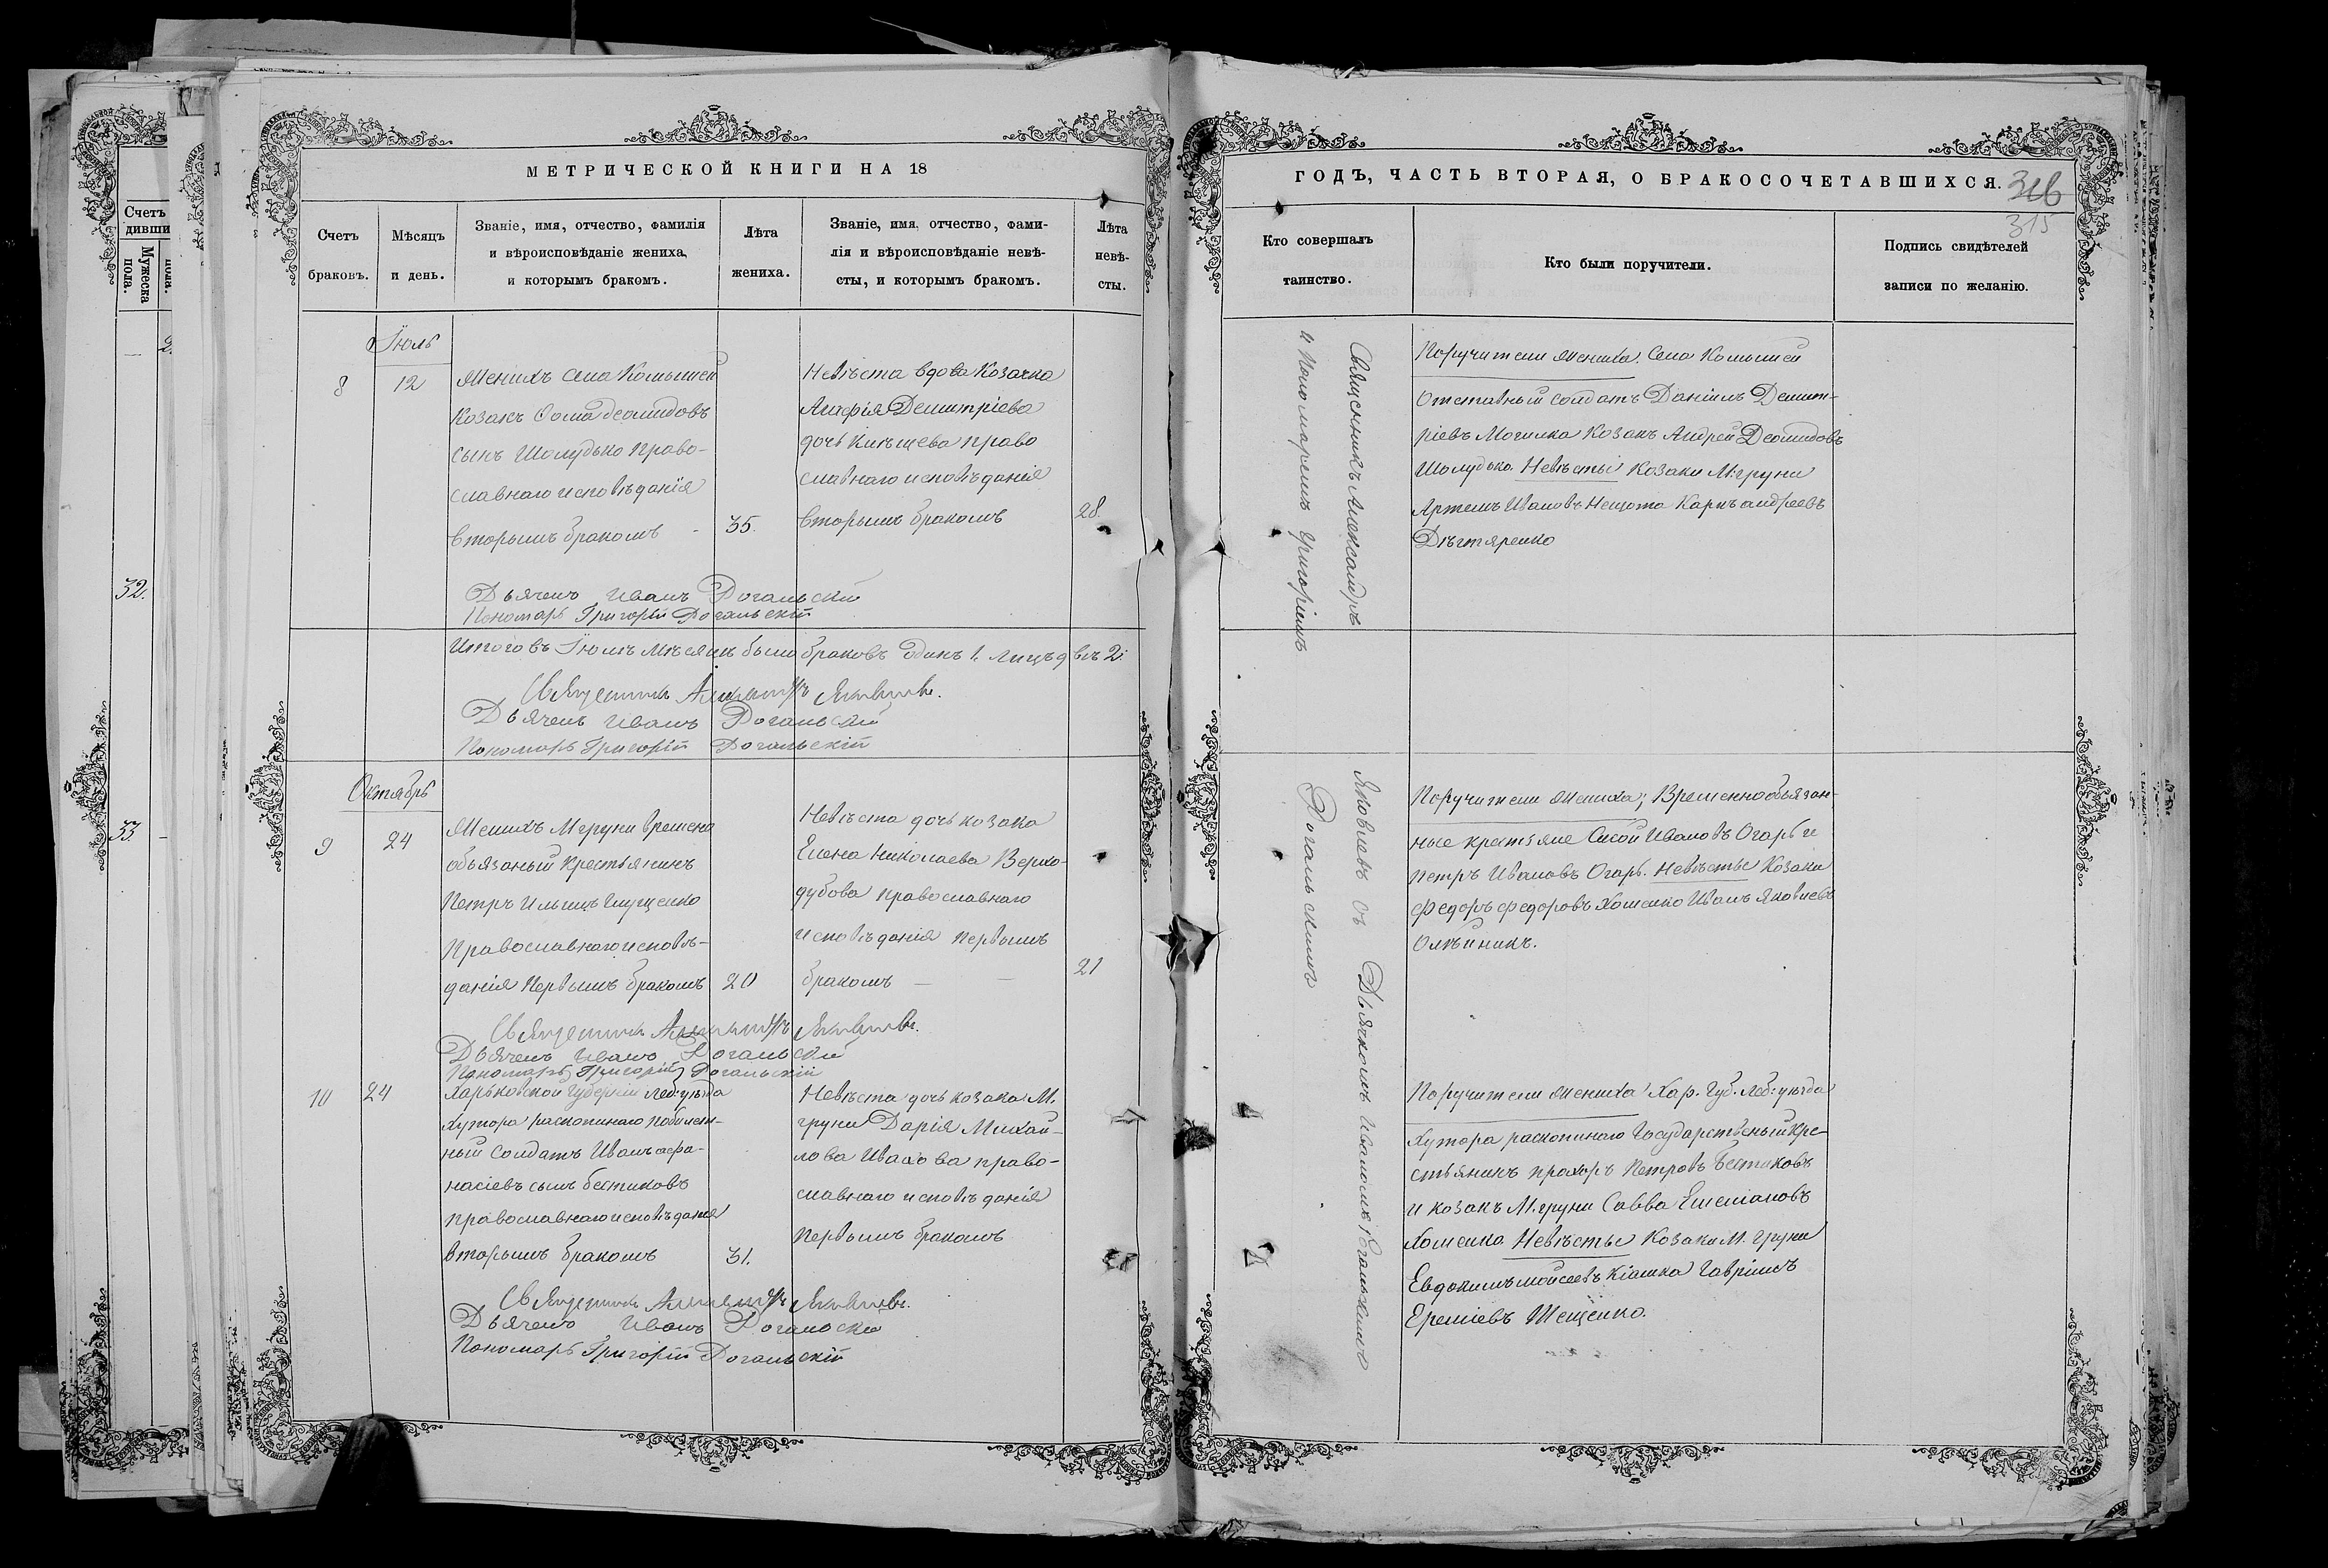 Счетъ
дивши
Мужеска
пола.
пола.
2.
32.
33.
МЕТРИЧЕСКОЙ КНИГИ НА 18
Счетъ
браковъ.
Мѣсяцъ
и день.
Званіе, имя, отчество, фамилія
и вѣроисповѣданіе жениха,
и которымъ бракомъ.
Лѣта
жениха.
Званіе, имя, отчество, фами-
лія и вѣроисповѣданіе невѣ-
сты, и которымъ бракомъ.
Лѣта
невѣ-
сты.
Іюль
8
12
Женихъ Села Комышей
Козакъ Фома Деомидовъ
сынъ Шолудько право-
славнаго исповѣданія
вторымъ бракомъ
35.
Невѣста вдова Козачка
Дмитріева
дочь право
славнаго исповѣданія
вторымъ бракомъ
28.
Дьячекъ Иванъ Рогальскій
Пономарь Григорій Рогальскій
Итого въ Іюлѣ мѣсяцѣ было браковъ одинъ 1, лицъ двѣ 2.
Священникъ Александръ Яковлевъ.
Дьячекъ Иванъ Рогальскій
Пономарь Григорій Рогальскій
Октябрь
9
24
Женихъ М: груни времено
обязаный крестьянинъ
Петръ Ильинъ Глущенко
Православнаго исповѣ-
данія первымъ бракомъ
20
Невѣста дочь козака
Елена Николаева Верхо-
дубова православнаго
исповѣданія первымъ
бракомъ
21
Священникъ Александръ Яковлевъ.
Дьячекъ Иванъ Рогальскій
Пономарь Григорій Рогальскій
10
24
Харьковской Губерніи Леб: уѣзда
Хутора
солдатъ Иванъ афа-
насіевъ сынъ
православнаго исповѣданія
вторымъ бракомъ
31.
Невѣста дочь козака М.
груни Дарія Михай-
лова право-
славнаго исповѣданія
первымъ бракомъ
Священникъ Александръ Яковлевъ.
Дьячекъ Иванъ Рогальскій
Пономарь Григорій Рогальскій
ГОДЪ, ЧАСТЬ ВТОРАЯ, О БРАКОСОЧЕТАВШИХСЯ.
315
Кто совершалъ
таинство.
Кто были поручители.
Подпись свидѣтелей
записи по желанію.
Священникъ Александръ Яковлевъ съ Дьячкомъ Иваномъ Рогальскимъ
и Пономаремъ Григоріемъ Рогальскимъ
Поручители жениха: Села Комышей
Отставный солдатъ Даніилъ Димит-
ріевъ Могилка Козакъ Андрей Деомидовъ
Шолудько Невѣсты Козаки М: груни
Артемъ Ивановъ Карпъ андреевъ
Дѣгтяренко
Поручители жениха; Временнообязан-
ные крестьяне Сисой Ивановъ Огарь и
Петръ Ивановъ Огарь. Невѣсты Козаки
Федоръ Федоровъ Хоменко Иванъ Яковлевъ
Олѣйникъ.
Поручители жениха Хар. Губ. Леб: уѣзда
Хутора Государственый кре-
стьянинъ Прохоръ Петровъ
и козакъ М. груни Савва Емеліановъ
Хоменко Невѣсты Козаки М. груни
Евдокимъ мойсеевъ Кіашко Гавріилъ